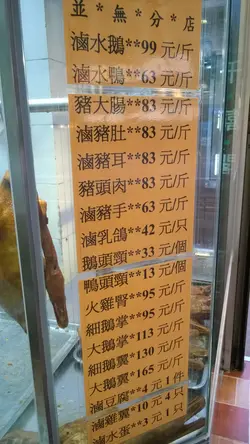 並*無*分*店
滷水鵝**99 元/斤
滷水鴨**63 元/斤
豬大腸**83 元/斤
滷豬肚**83 元/斤
滷豬耳**83 元/斤
豬頭肉**83 元/斤
滷豬手**63 元/斤
滷乳鴿**42 元/只
鵝頭頸**33 元/個
鴨頭頸**13 元/個
火雞腎**95 元/斤
細鵝掌**95 元/斤
大鵝掌*113 元/斤
細鵝翼*130 元/斤
大鵝翼*165 元/斤
滷豆腐**4 元 1 件
滷雞翼*10 元 4 只
滷水蛋**3 元 1 只